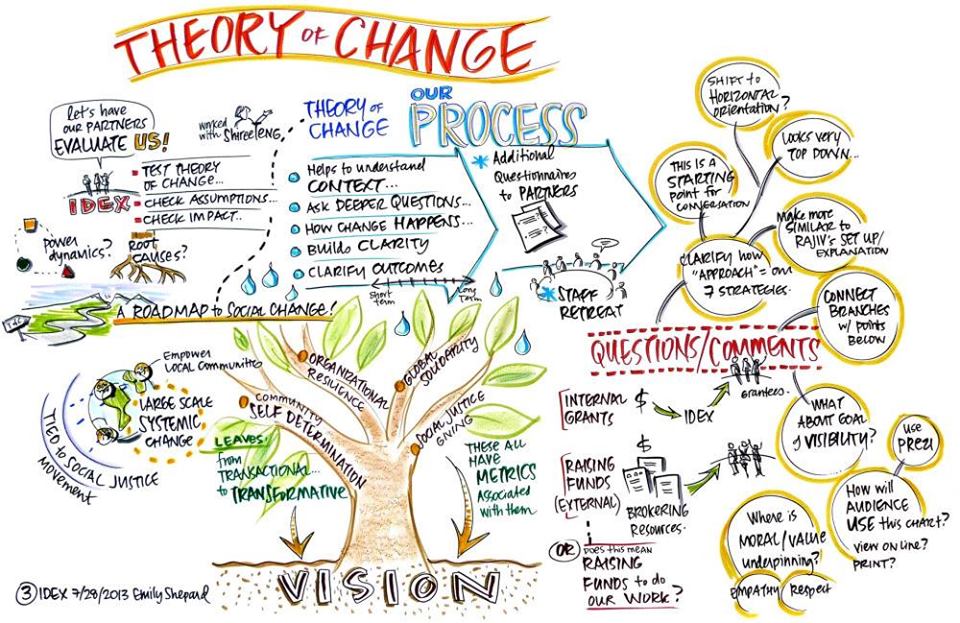 THEORY OF CHANGE
let's have
our PARTNERS
EVALUATE US!
IDEX
TEST THEORY
OF CHANGE...
CHECK ASSUMPTIONS...
CHECK IMPACT..
worked
with Shiree TENG
Power
dynamics?
Root
CAUSES?
A ROADMAP to SOCIAL CHANGE!
THEORY OF
CHANGE
OUR
PROCESS
Helps to understand
CONTEXT...
ASK DEEPER QUESTIONS...
HOW CHANGE HAPPENS...
Builds CLARITY
CLARIFY OUTCOMES
Short
term
Long
Term
Additional
Questionnaires
to PARTNERS
STAFF
RETREAT
SHIFT to
HORIZONTAL
ORIENTATION?
Looks very
TOP DOWN...
THIS IS A
STARTING
point for
CONVERSATION
Make more
SIMILAR to
RAJIV'S SET UP/
EXPLANATION
CLARIFY how
"APPROACH" = our
7 STRATEGIES.
CONNECT
BRANCHES
w/ points
BELOW
QUESTIONS/COMMENTS
Empower
LOCAL Communities
LARGE SCALE
SYSTEMIC
CHANGE
TIED to SOCIAL JUSTICE
MOVEMENT
ORGANIZATIONAL
RESILIENCE
GLOBAL
SOLIDARITY
COMMUNITY
SELF DETERMINATION
SOCIAL JUSTICE
GIVING
LEAVES:
from
TRANSACTIONAL...
to TRANSFORMATIVE
THESE ALL
HAVE
METRICS
Associated
with them
VISION
INTERNAL
GRANTS
$
IDEX
Grantees.
RAISING
FUNDS
(EXTERNAL)
$
BROKERING
RESOURCES.
OR
DOES this MEAN
RAISING
FUNDS to do
OUR WORK?
WHAT
ABOUT GOAL
of VISIBILITY?
use
PREZI
How will
AUDIENCE
USE this CHART?
view online?
PRINT?
Where is
MORAL/VALUE
underpinning?
EMPATHY
Respect
3 IDEX 7/28/2013 Emily Shepard